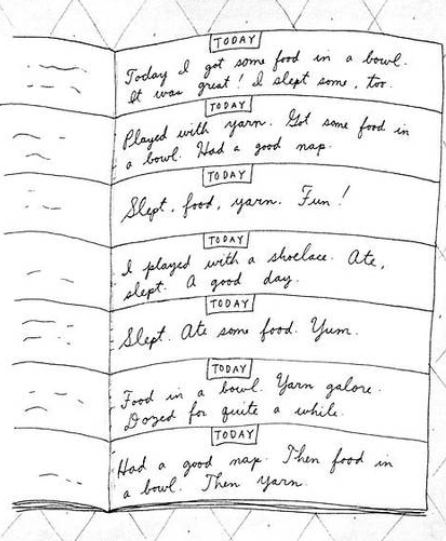 TODAY
Today I got some food in a bowl.
It was great! I slept some, too.
TODAY
Played with yarn. Got some food in
a bowl. Had a good nap.
TODAY
Slept, food, yarn. Fun!
TODAY
I played with a shoelace. Ate,
slept. A good day.
TODAY
Slept. Ate some food. Yum.
TODAY
Food in a bowl. Yarn galore.
Dozed for quite a while.
TODAY
Had a good nap. Then food in
a bowl. Then yarn.